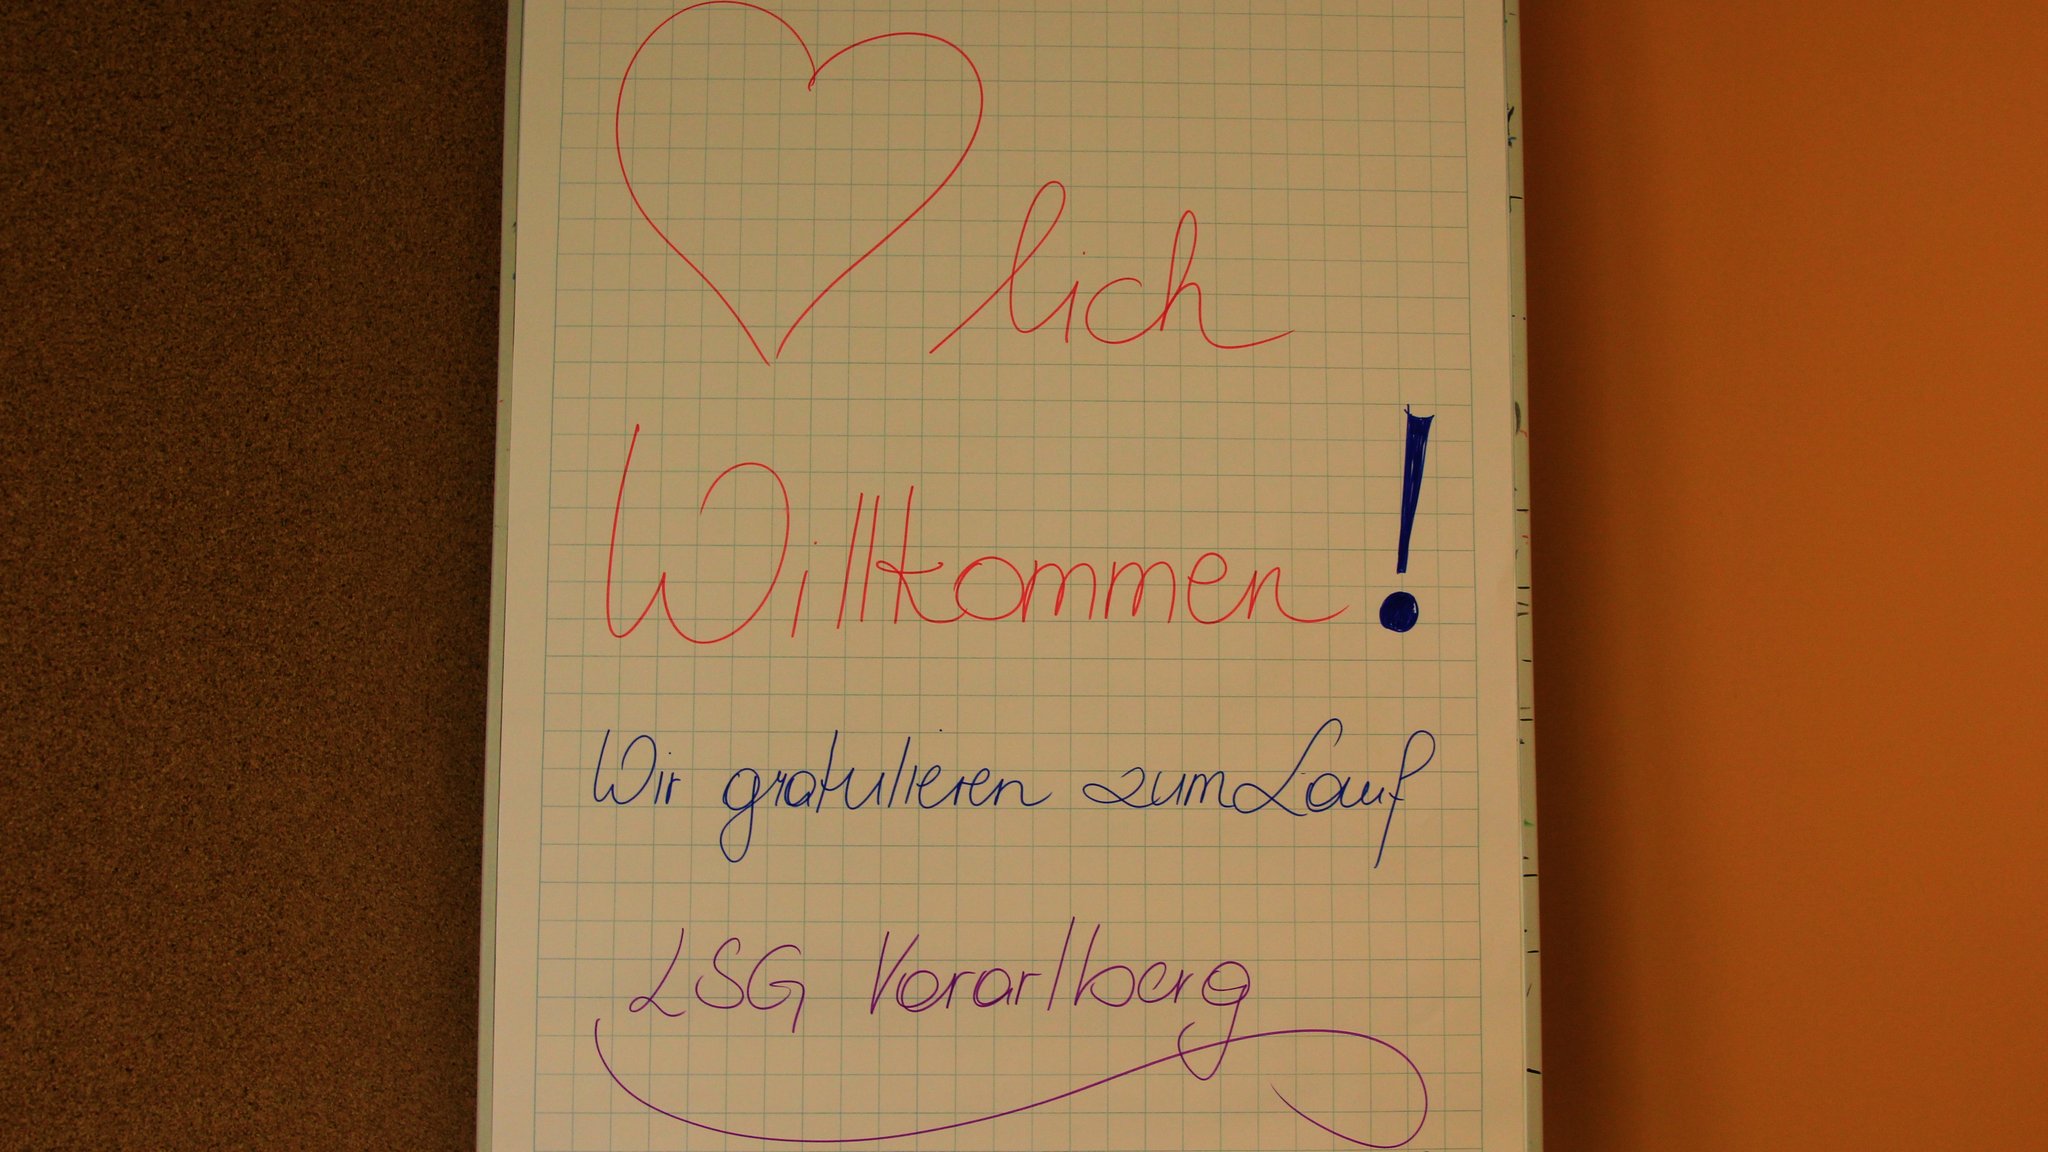 ♡lich
Willkommen!
Wir gratulieren zum Lauf
LSG Vorarlberg